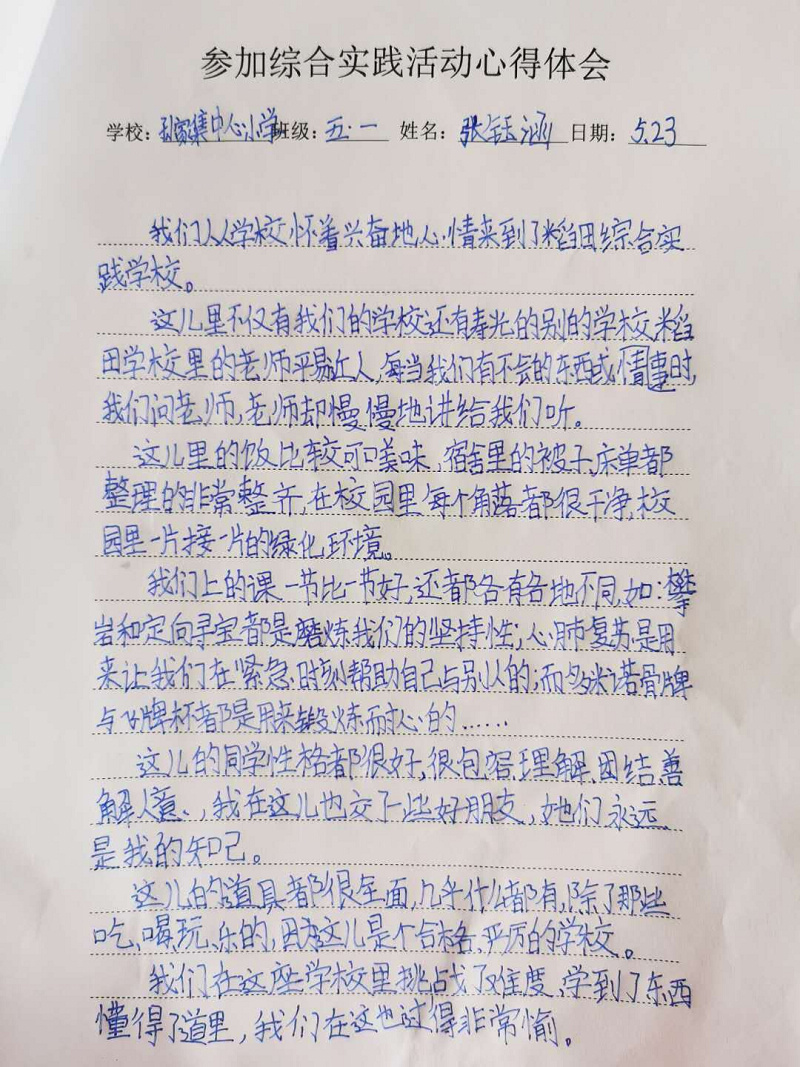 参加综合实践活动心得体会
学校：孙家集中心小学班级：五.一 姓名：张钰涵 日期：5.23
我们从学校怀着兴奋地心情来到了稻田综合实
践学校。
这儿里不仅有我们的学校还有寿光的别的学校,稻
田学校里的老师平易近人,每当我们有不会的东西或情事时,
我们问老师,老师却慢慢地讲给我们听。
这儿里的饭比较可口美味,宿舍里的被子,床单都
整理的非常整齐,在校园里每个角落都很干净,校
园里一片接一片的绿化环境。
我们上的课一节比一节好,还都各有各地不同,如:攀
岩和定向寻宝都是磨炼我们的坚持性;心肺复苏是用
来让我们在紧急时刻帮助自己与别人的;而多米诺骨牌
与飞牌杯都是用来锻炼耐心的……
这儿的同学性格都很好,很包容,理解,团结,善
解人意,我在这儿也交了些好朋友,她们永远
是我的知己。
这儿的道具都很全面,几乎什么都有,除了那些
吃、喝、玩、乐的,因为这儿是个合格、严厉的学校。
我们在这座学校里挑战了难度,学到了东西
懂得了道里,我们在这也过得非常愉。